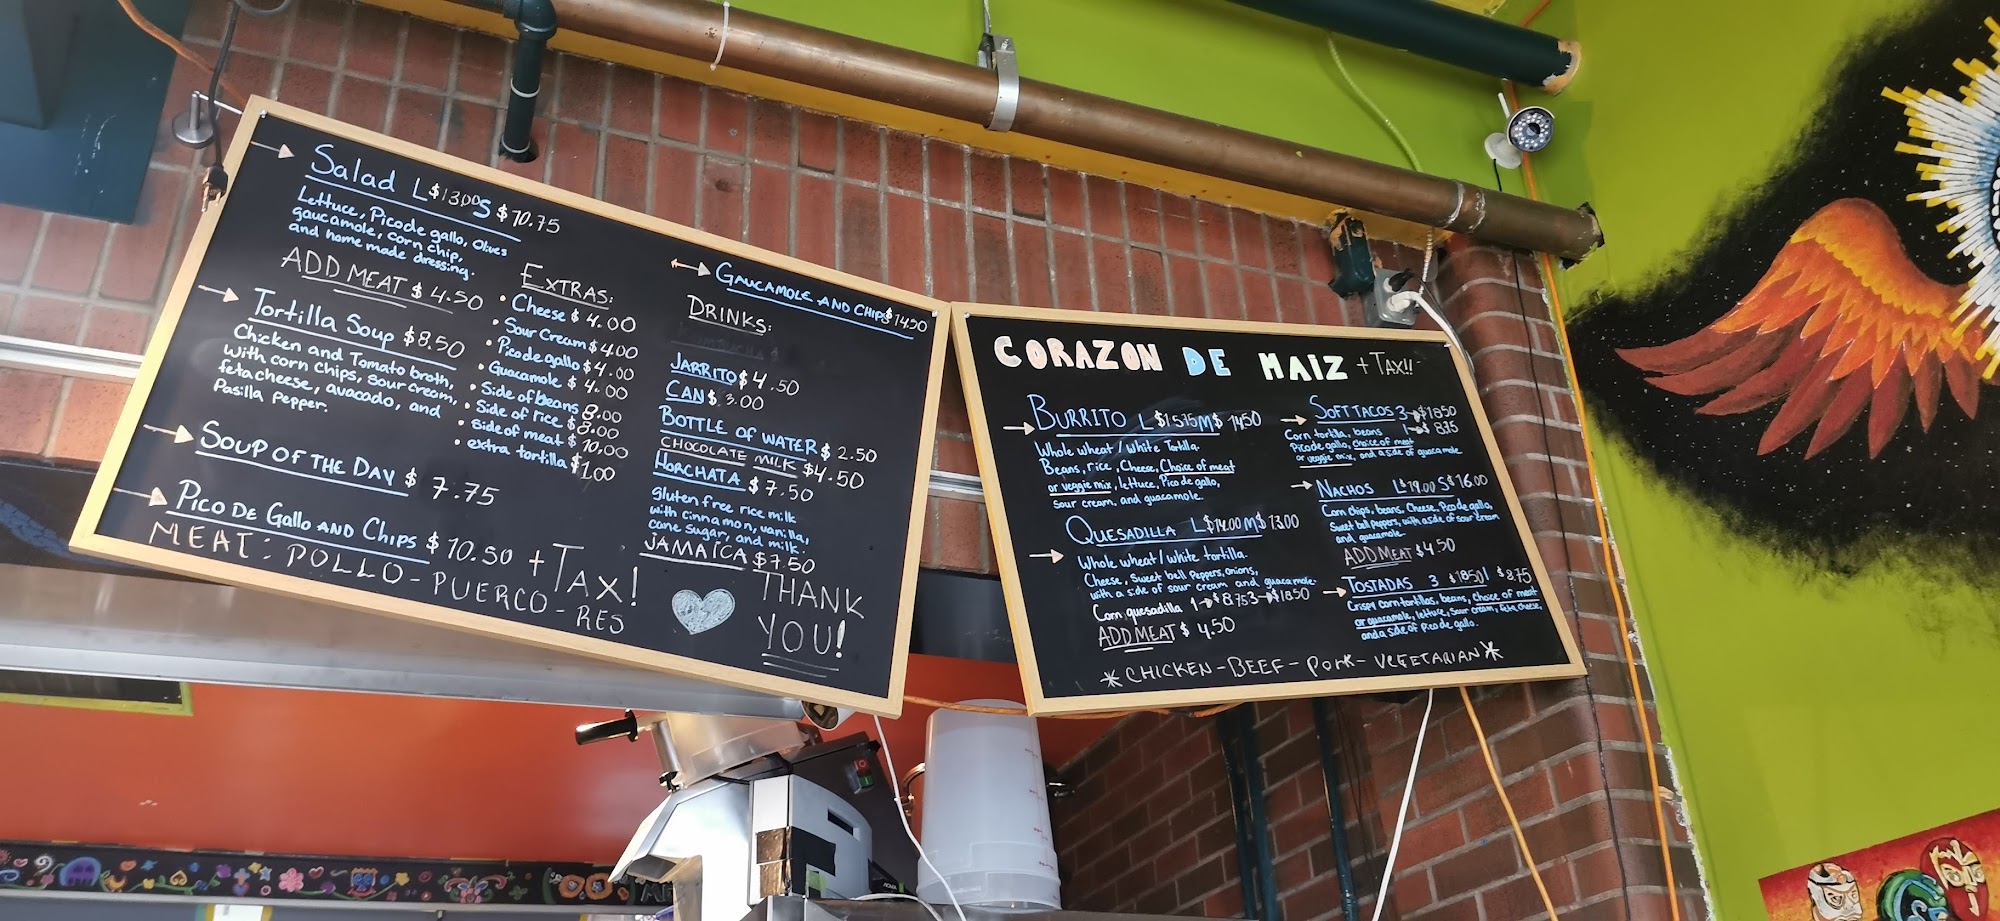 Salad L $13.00 S $10.75
Lettuce, Pico de gallo, Olives
gaucamole, corn chip,
and home made dressing.
ADD MEAT $4.50
Tortilla Soup $8.50
Chicken and Tomato broth,
with corn chips, sour cream,
feta cheese, avacado, and
Pasilla Pepper.
SOUP OF THE DAY $7.75
PICO DE GALLO AND CHIPS $10.50 + TAX!
MEAT: POLLO - PUERCO - RES
EXTRAS:
• Cheese $4.00
• Sour Cream $4.00
• Pico de gallo $4.00
• Guacamole $4.00
• Side of beans 8.00
• Side of rice $8.00
• side of meat $10.00
• extra tortilla $1.00
GAUCAMOLE AND CHIPS $14.50
DRINKS:
JARRITO $4.50
CAN $3.00
BOTTLE OF WATER $2.50
CHOCOLATE MILK $4.50
HORCHATA $7.50
gluten free rice milk
with cinnamon, vanilla,
cane sugar, and milk.
JAMAICA $7.50
THANK
YOU!
CORAZON DE MAIZ + TAX!!
BURRITO L $15.75 M $14.50
Whole wheat / white Tortilla
Beans, rice, Cheese, Choice of meat
or veggie mix, lettuce, Pico de gallo,
sour cream, and guacamole.
QUESADILLA L $14.00 M $13.00
Whole wheat / white tortilla.
Cheese, Sweet bell Peppers, onions,
with a side of sour cream and guacamole
Corn quesadilla 1 → $8.75 3 → $18.50
ADD MEAT $4.50
SOFT TACOS 3 → $18.50
1 → $8.75
Corn tortilla, beans
Pico de gallo, choice of meat
or veggie mix, and a side of guacamole
NACHOS L $19.00 S $16.00
Corn chips, beans, Cheese, Pico de gallo,
Sweet bell peppers, with a side of sour cream
and guacamole.
ADD MEAT $4.50
TOSTADAS 3 $18.50 1 $8.75
Crispy corn tortillas, beans, choice of meat
or guacamole, lettuce, sour cream, feta cheese,
and a side of Pico de gallo.
* CHICKEN - BEEF - PORK - VEGETARIAN *